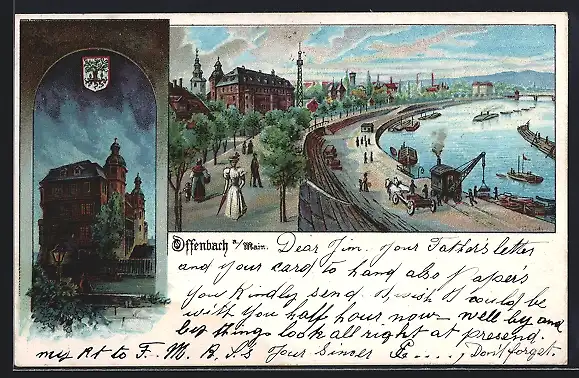 Offenbach a/Main. Dear Jim. your Father's letter
and your card to hand also Paper's
you Kindly send. I wish I could be
with you half hour now - well by and
by things look all right at present.
my Rt to F. M. B. S.S Your Sincer Dont forget.